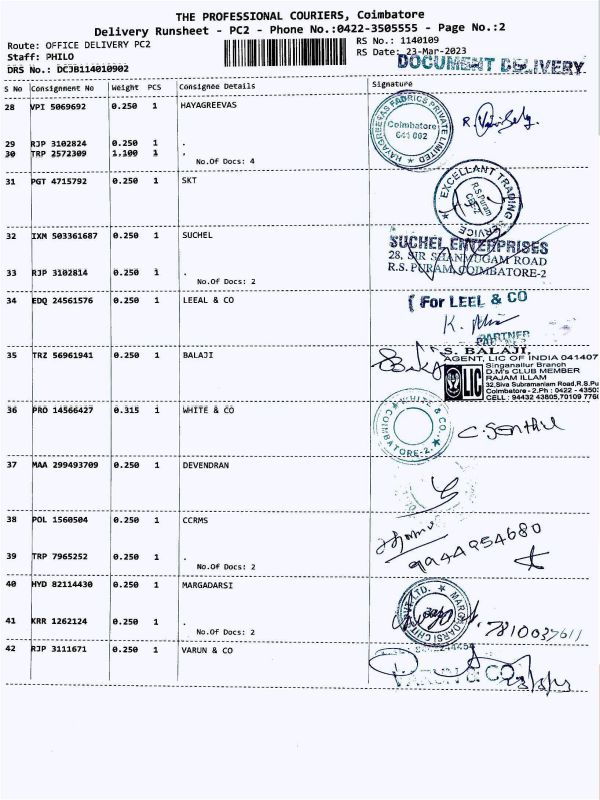 THE PROFESSIONAL COURIERS, Coimbatore
Delivery Runsheet - PC2 - Phone No.:0422-3505555 - Page No.:2
Route: OFFICE DELIVERY PC2
RS No.: 1140109
Staff: PHILO
RS Date: 23-Mar-2023
DOCUMENT DELIVERY
DRS No.: DCJB114010902
S No Consignment No Weight PCS Consignee Details Signature
28 VPI 5069692 0.250 1 HAYAGREEVAS
HAYAGREEVAS FABRICS PRIVATE LIMITED
Coimbatore
641 002
29 RJP 3102824 0.250 1 .
30 TRP 2572309 1.100 1 .
No.Of Docs: 4
31 PGT 4715792 0.250 1 SKT
EXCELLANT TRADING SERVICE
R.S.Puram
CBE-2
32 IXM 503361687 0.250 1 SUCHEL
SUCHEL ENTERPRISES
28, SIR SHANMUGAM ROAD
R.S. PURAM, COIMBATORE-2
33 RJP 3102814 0.250 1 .
No.Of Docs: 2
34 EDQ 24561576 0.250 1 LEEAL & CO
For LEEL & CO
PARTNER
35 TRZ 56961941 0.250 1 BALAJI
S. BALAJI,
AGENT, LIC OF INDIA 041407
Singanallur Branch
D.M's CLUB MEMBER
RAJAM ILLAM
LIC
32,Siva Subramaniam Road,R.S.Pu
Coimbatore - 2.Ph : 0422 - 43503
CELL : 94432 43805,70109 7760
36 PRO 14566427 0.315 1 WHITE & CO
WHITE & CO.
COIMBATORE-2.
C. Senthil
37 MAA 299493709 0.250 1 DEVENDRAN
38 POL 1560504 0.250 1 CCRMS
9944954680
39 TRP 7965252 0.250 1 .
No.Of Docs: 2
40 HYD 82114430 0.250 1 MARGADARSI
7810037611
41 KRR 1262124 0.250 1 .
No.Of Docs: 2
42 RJP 3111671 0.250 1 VARUN & CO
VARUN & CO